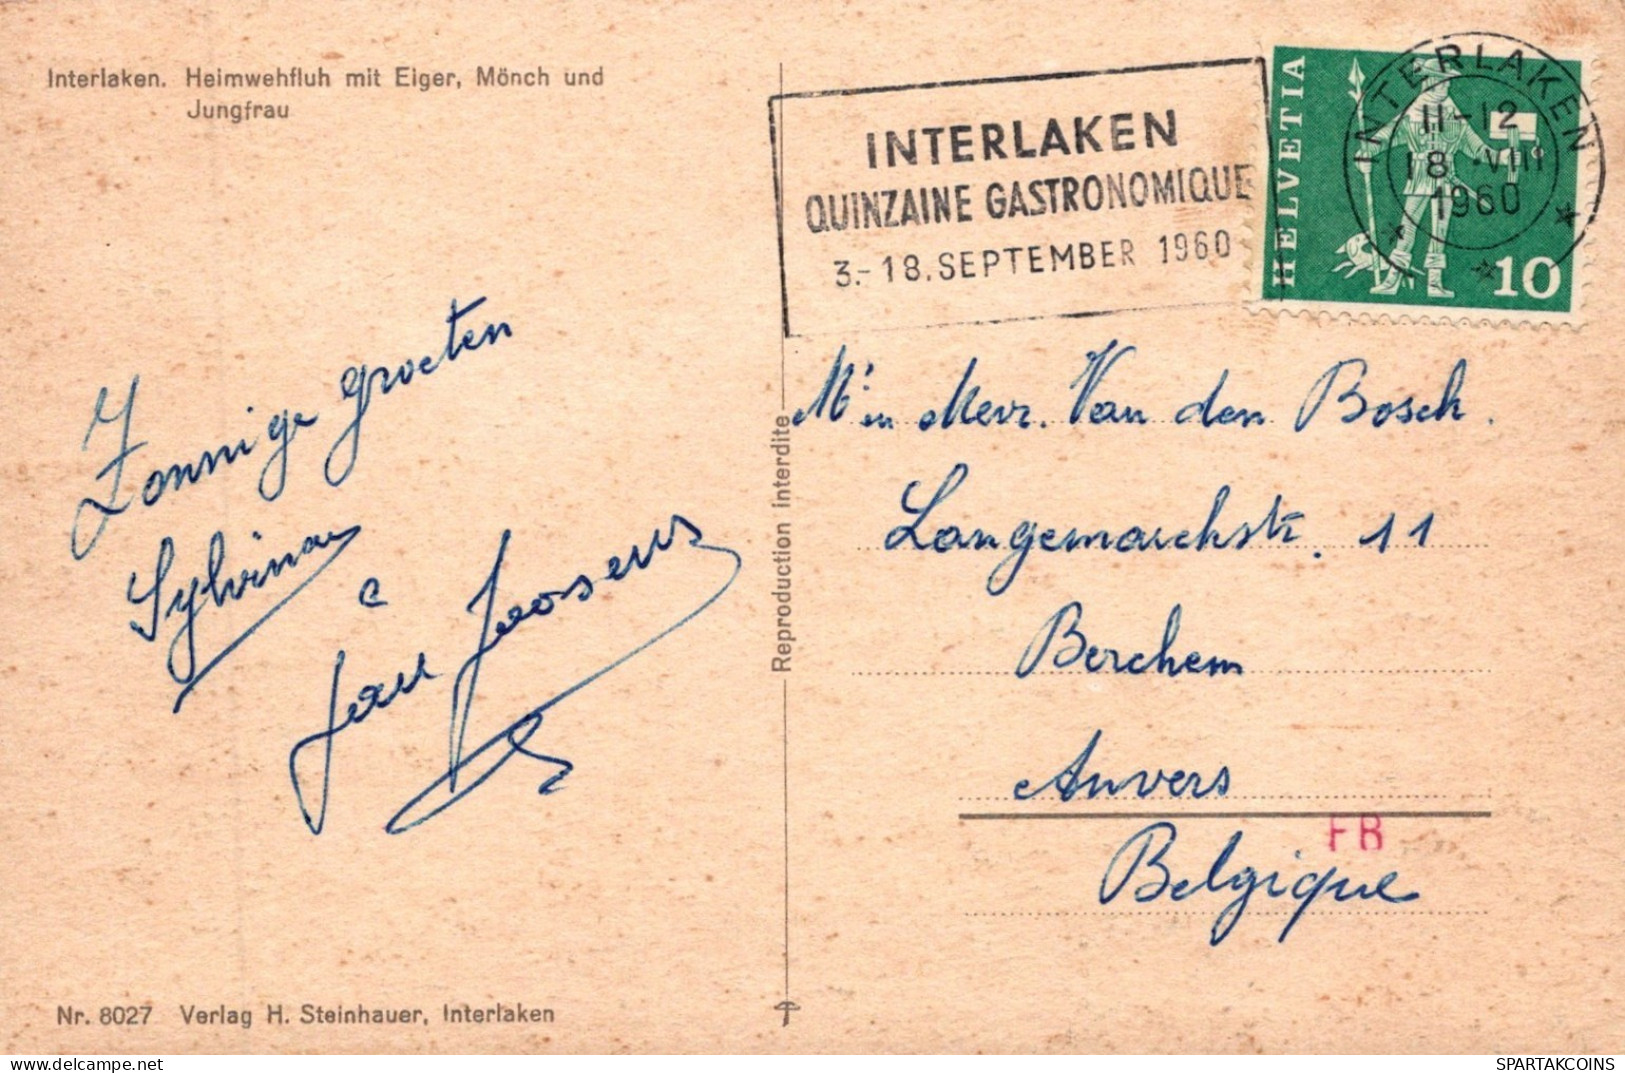 Interlaken. Heimwehfluh mit Eiger, Mönch und
Jungfrau
INTERLAKEN
QUINZAINE GASTRONOMIQUE
3.-18. SEPTEMBER 1960
HELVETIA
10
INTERLAKEN
11-12
18.VIII
1960
Zonnige groeten
Sylvina
e
Jean Joossens
Reproduction interdite
Mr en Mevr. Van den Bosch.
Langemarckstr. 11
Berchem
Anvers
FB
Belgique
Nr. 8027 Verlag H. Steinhauer, Interlaken
delcampe.net
SPARTAKCOINS